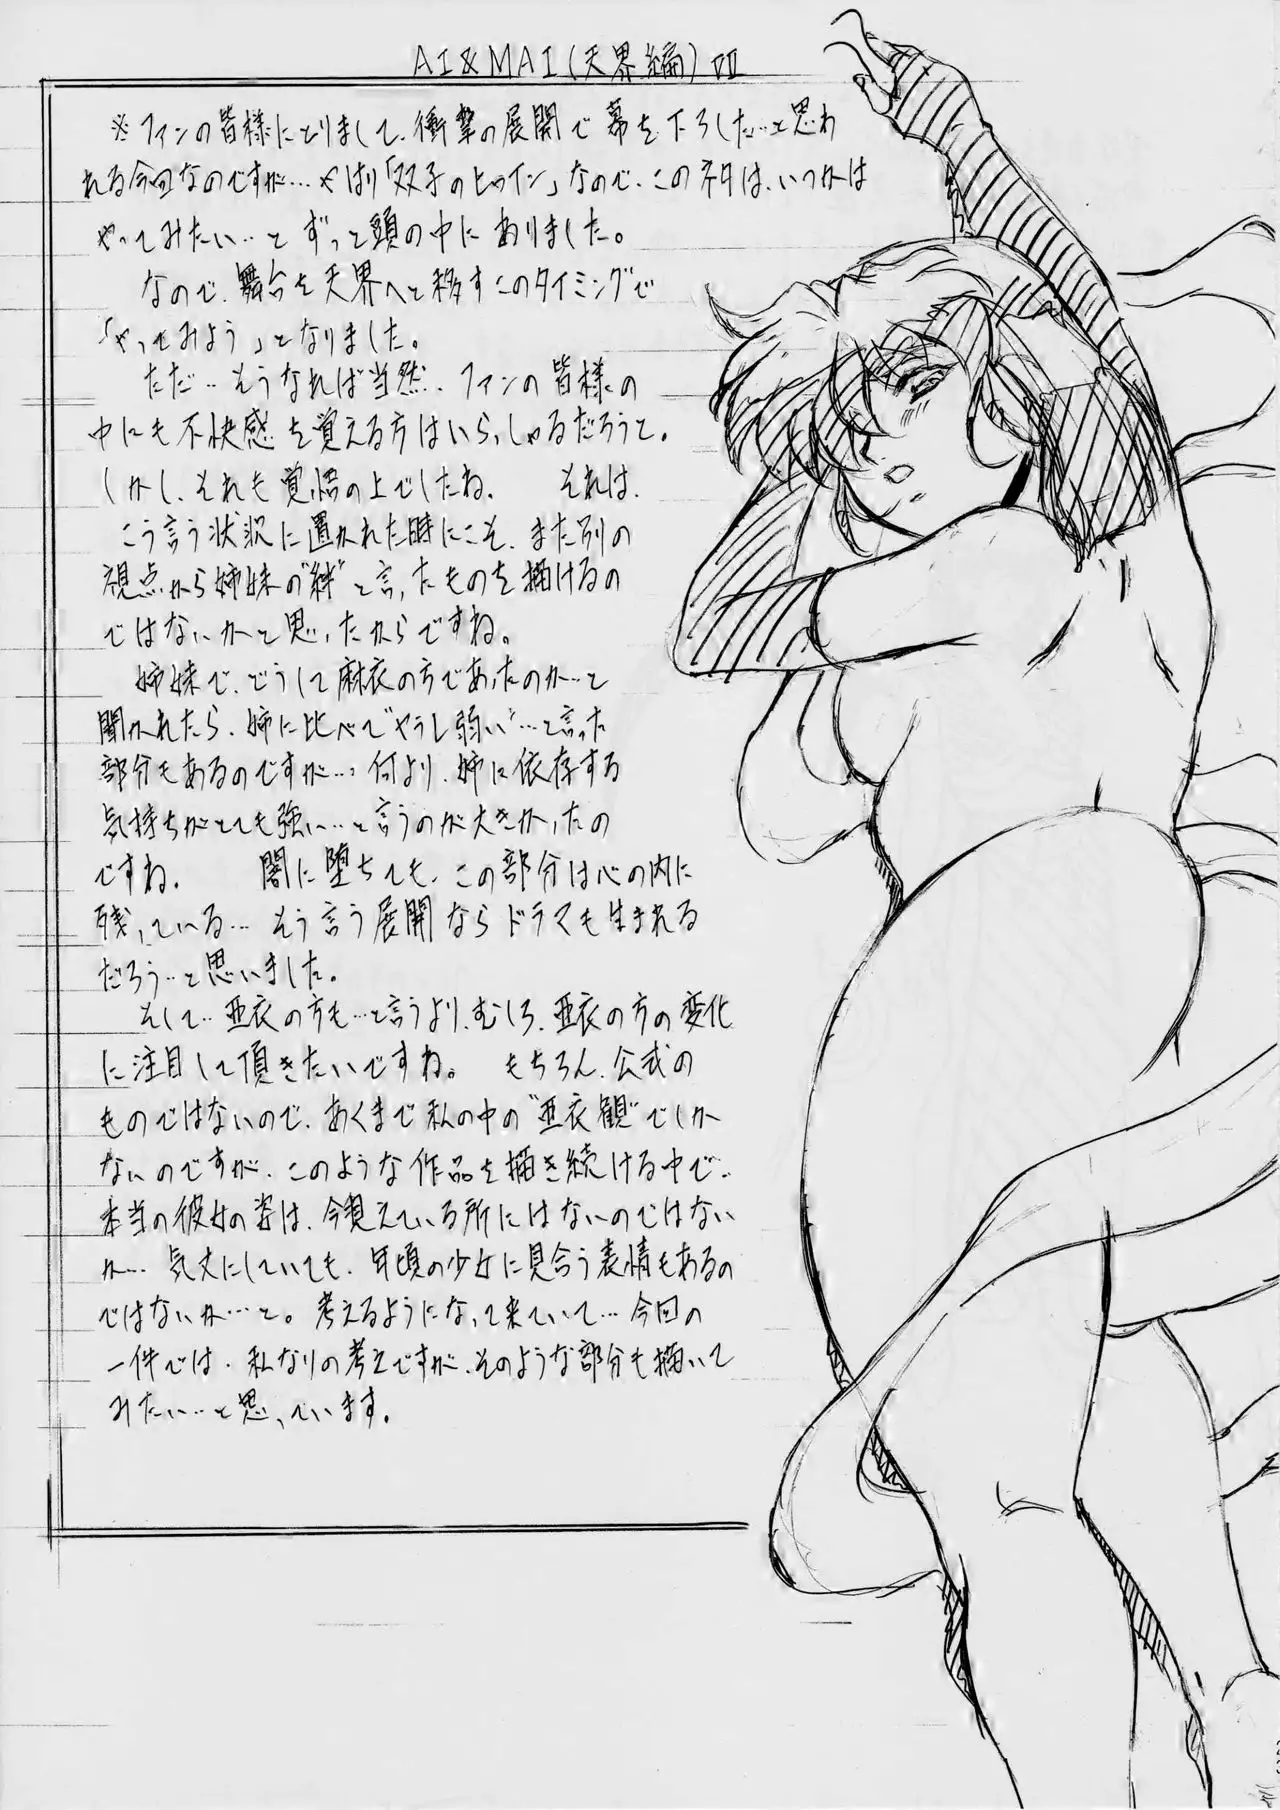 AI&MAI(天界編)VII
※ファンの皆様にとりまして、衝撃の展開で幕を下ろした…と思わ
れる今回なのですが…やはり「双子のヒロイン」なので、このネタは、いつかは
やってみたい…とずっと頭の中にありました。
なので、舞台を天界へと移すこのタイミングで
「やってみよう」となりました。
ただ…そうなれば当然、ファンの皆様の
中にも不快感を覚える方はいらっしゃるだろうと。
しかし、それも覚悟の上でしたね。 それは、
こう言う状況に置かれた時にこそ、また別の
視点から姉妹の“絆”と言ったものを描けるの
ではないかと思ったからですね。
姉妹で、どうして麻衣の方であったのか…と
聞かれたら、姉に比べて“やゝし弱い”…と言った
部分もあるのですが…、何より、姉に依存する
気持ちがとても強い…と言うのが大きかったの
ですね。 闇に堕ちても、この部分は心の内に
残っている…そう言う展開ならドラマも生まれる
だろう…と思いました。
そして…亜衣の方も…と言うより、むしろ、亜衣の方の変化
に注目して頂きたいですね。 もちろん、公式の
ものではないので、あくまで私の中の“亜衣観”でしか
ないのですが、このような作品を描き続ける中で…
本当の彼女の姿は、今見えている所にはないのではない
か…気丈にしていても、年頃の少女に見合う表情もあるの
ではないか…と。考えるようになって来ていて…今回の
一件では、私なりの考えですが、そのような部分も描いて
みたい…と思っています。